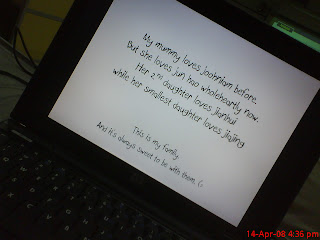 My mummy loves Joohniam before.
But she loves jun hao wholeheartly now.
Her 2nd daughter loves jianhui
while her smallest daughter loves jiajing
This is my family.
And it's always sweet to be with them. (:
14-Apr-08 4:36 pm